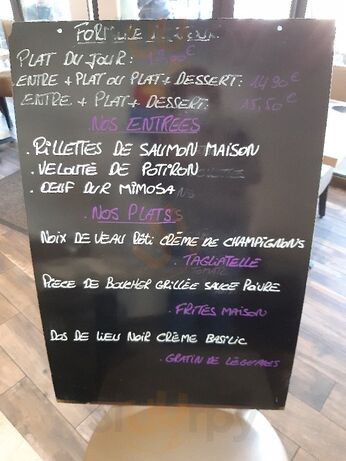 FORMULE
PLAT DU JOUR :
ENTRE + PLAT OU PLAT + DESSERT : 14,90€
ENTRE + PLAT + DESSERT : 15,50€
NOS ENTREES
. RILLETTES DE SAUMON MAISON
. VELOUTÉ DE POTIRON
. OEUF DUR MIMOSA
NOS PLATS
NOIX DE VEAU RÔTI CRÈME DE CHAMPIGNONS
. TAGLIATELLE
PIECE DE BOUCHER GRILLÉE SAUCE POIVRE
. FRITES MAISON
DOS DE LIEU NOIR CRÈME BASILIC
. GRATIN DE LÉGUMES